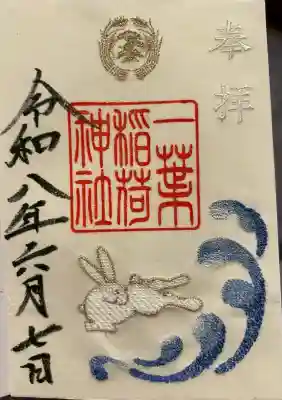 奉拝
一葉
稲荷
神社
令和八年六月七日